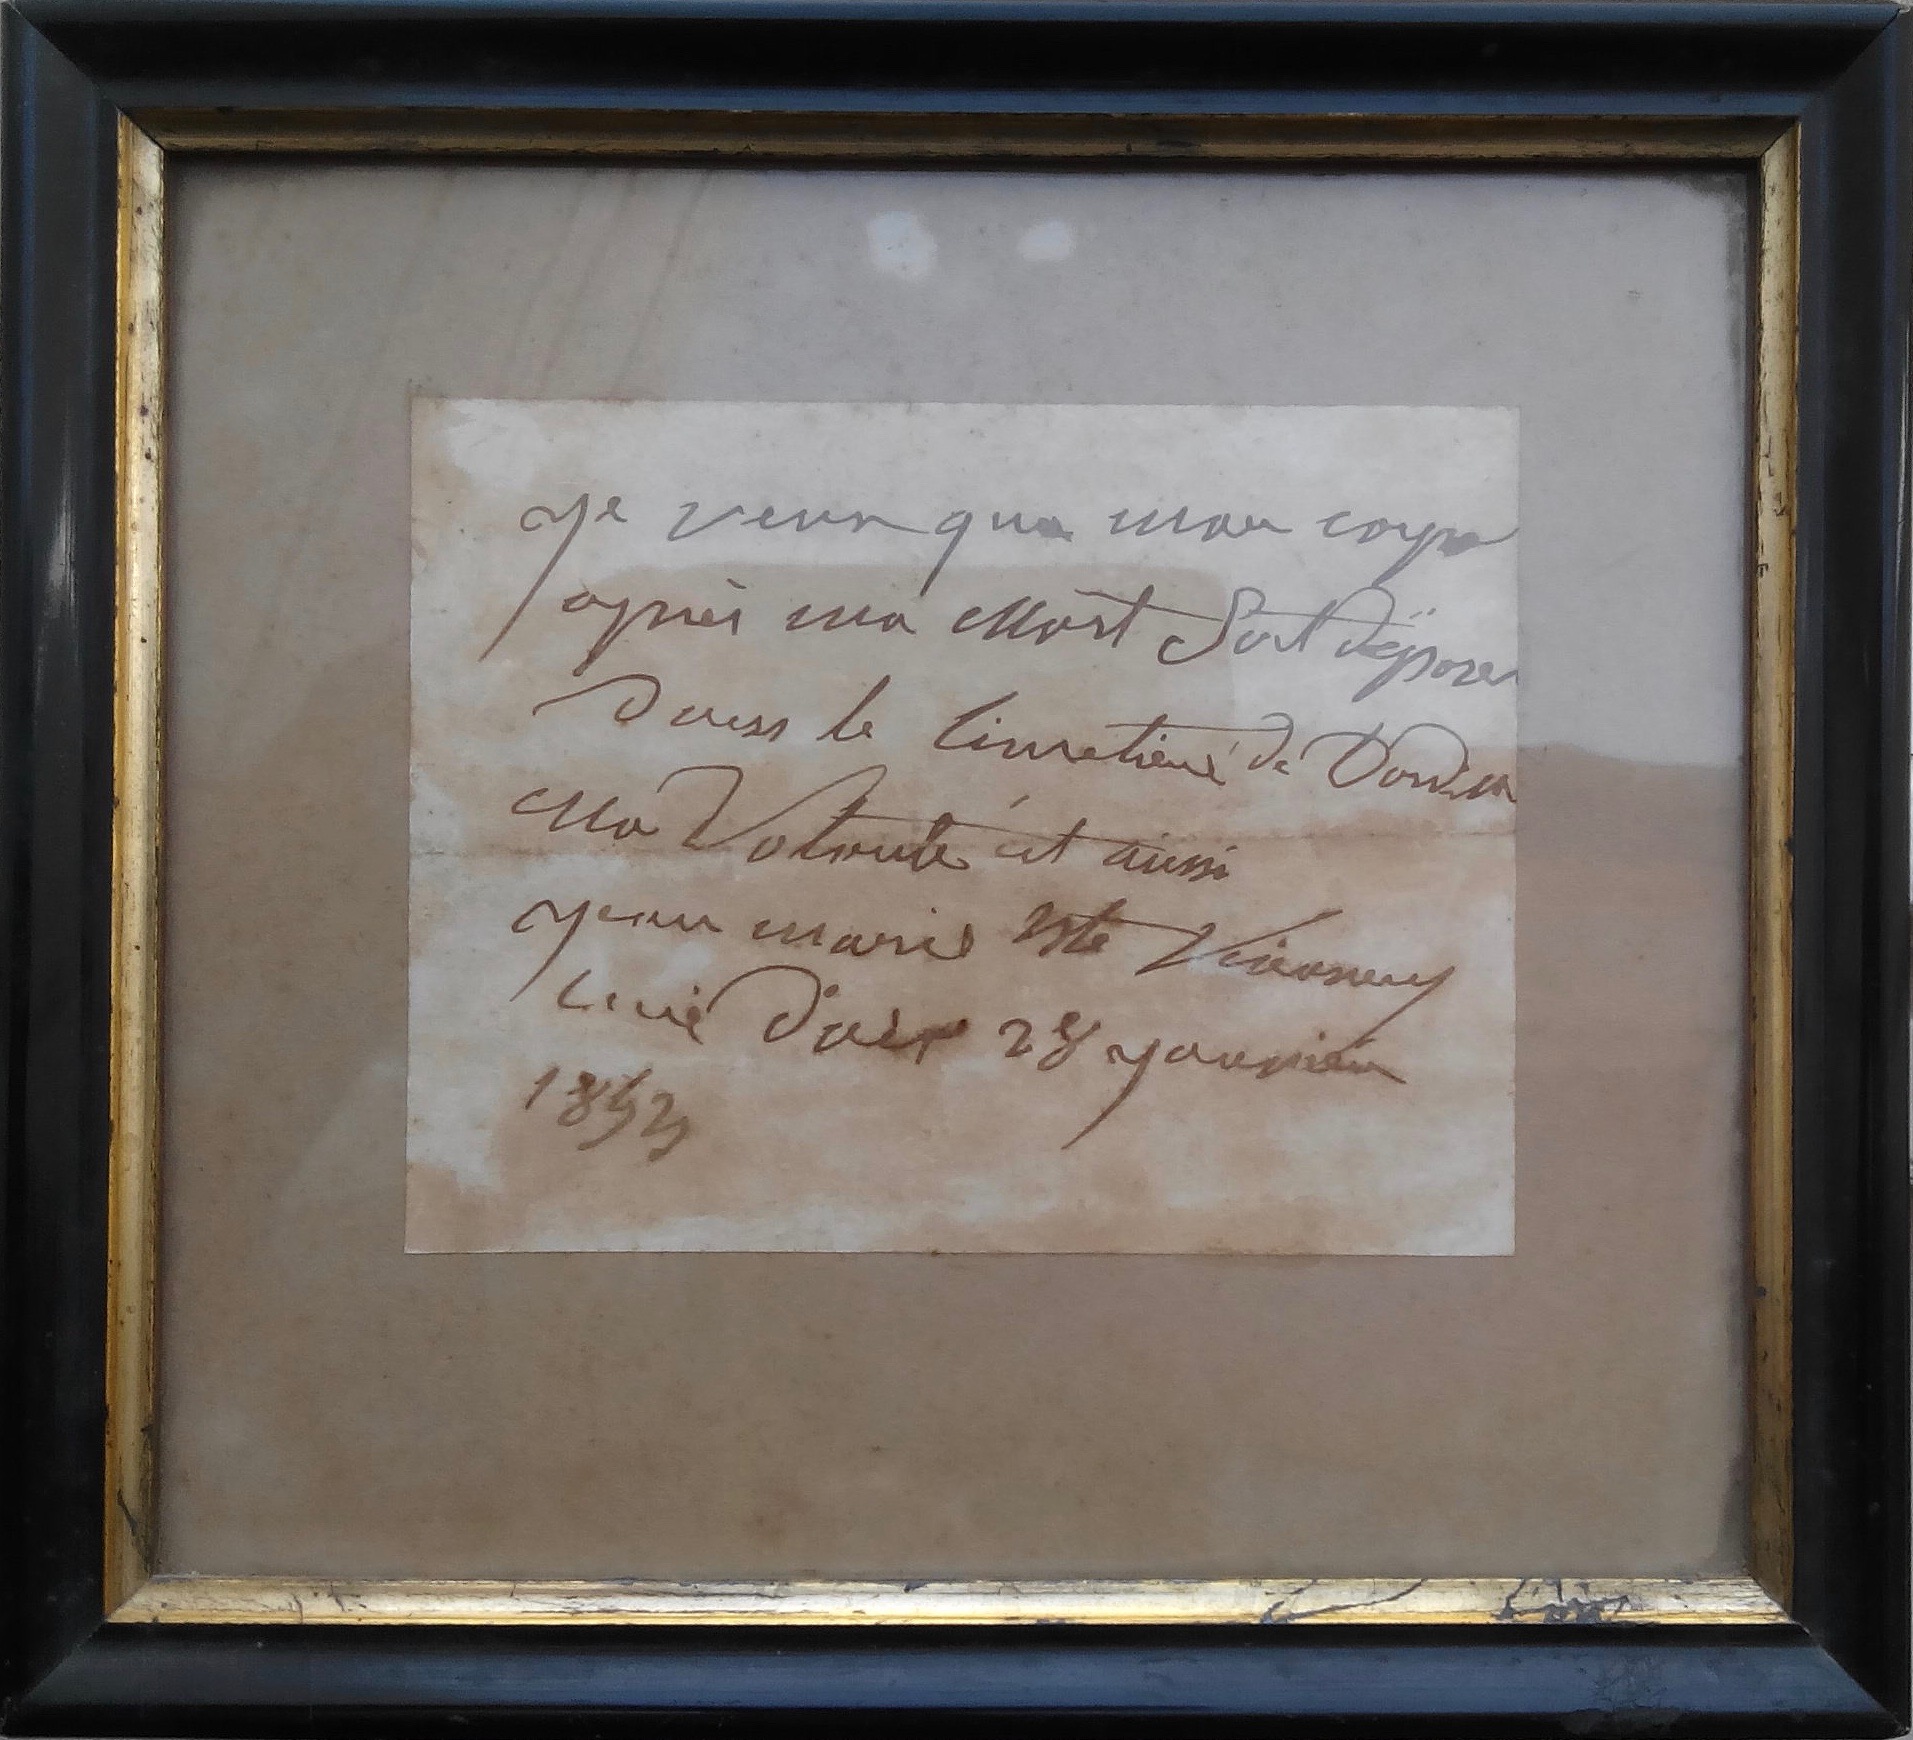 je veux que mon corps
après ma Mort soit déposer
dans le Cimetiere de
Ma Volonte et aussi
jean marie Bte Vianney
curé d'ars 28 janvier
1853